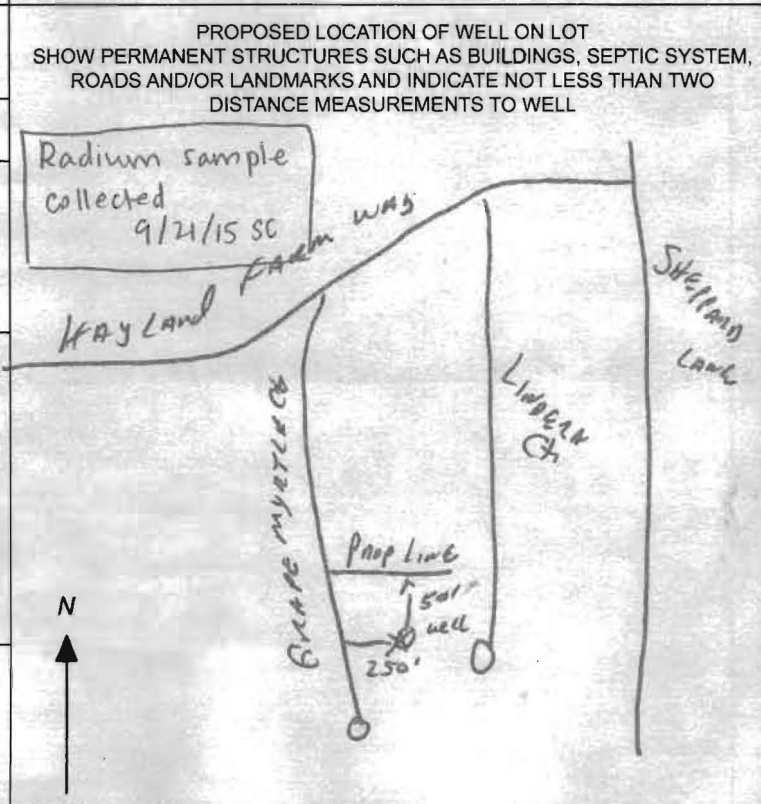 PROPOSED LOCATION OF WELL ON LOT
SHOW PERMANENT STRUCTURES SUCH AS BUILDINGS, SEPTIC SYSTEM,
ROADS AND/OR LANDMARKS AND INDICATE NOT LESS THAN TWO
DISTANCE MEASUREMENTS TO WELL
Radium sample
collected
9/21/15 SC
HAYLAND FARM WAY
SHEPPARD
LANE
LINDERN
Ct.
GRAPE MYRTLE Ct
PROP LINE
50'
well
250'
N